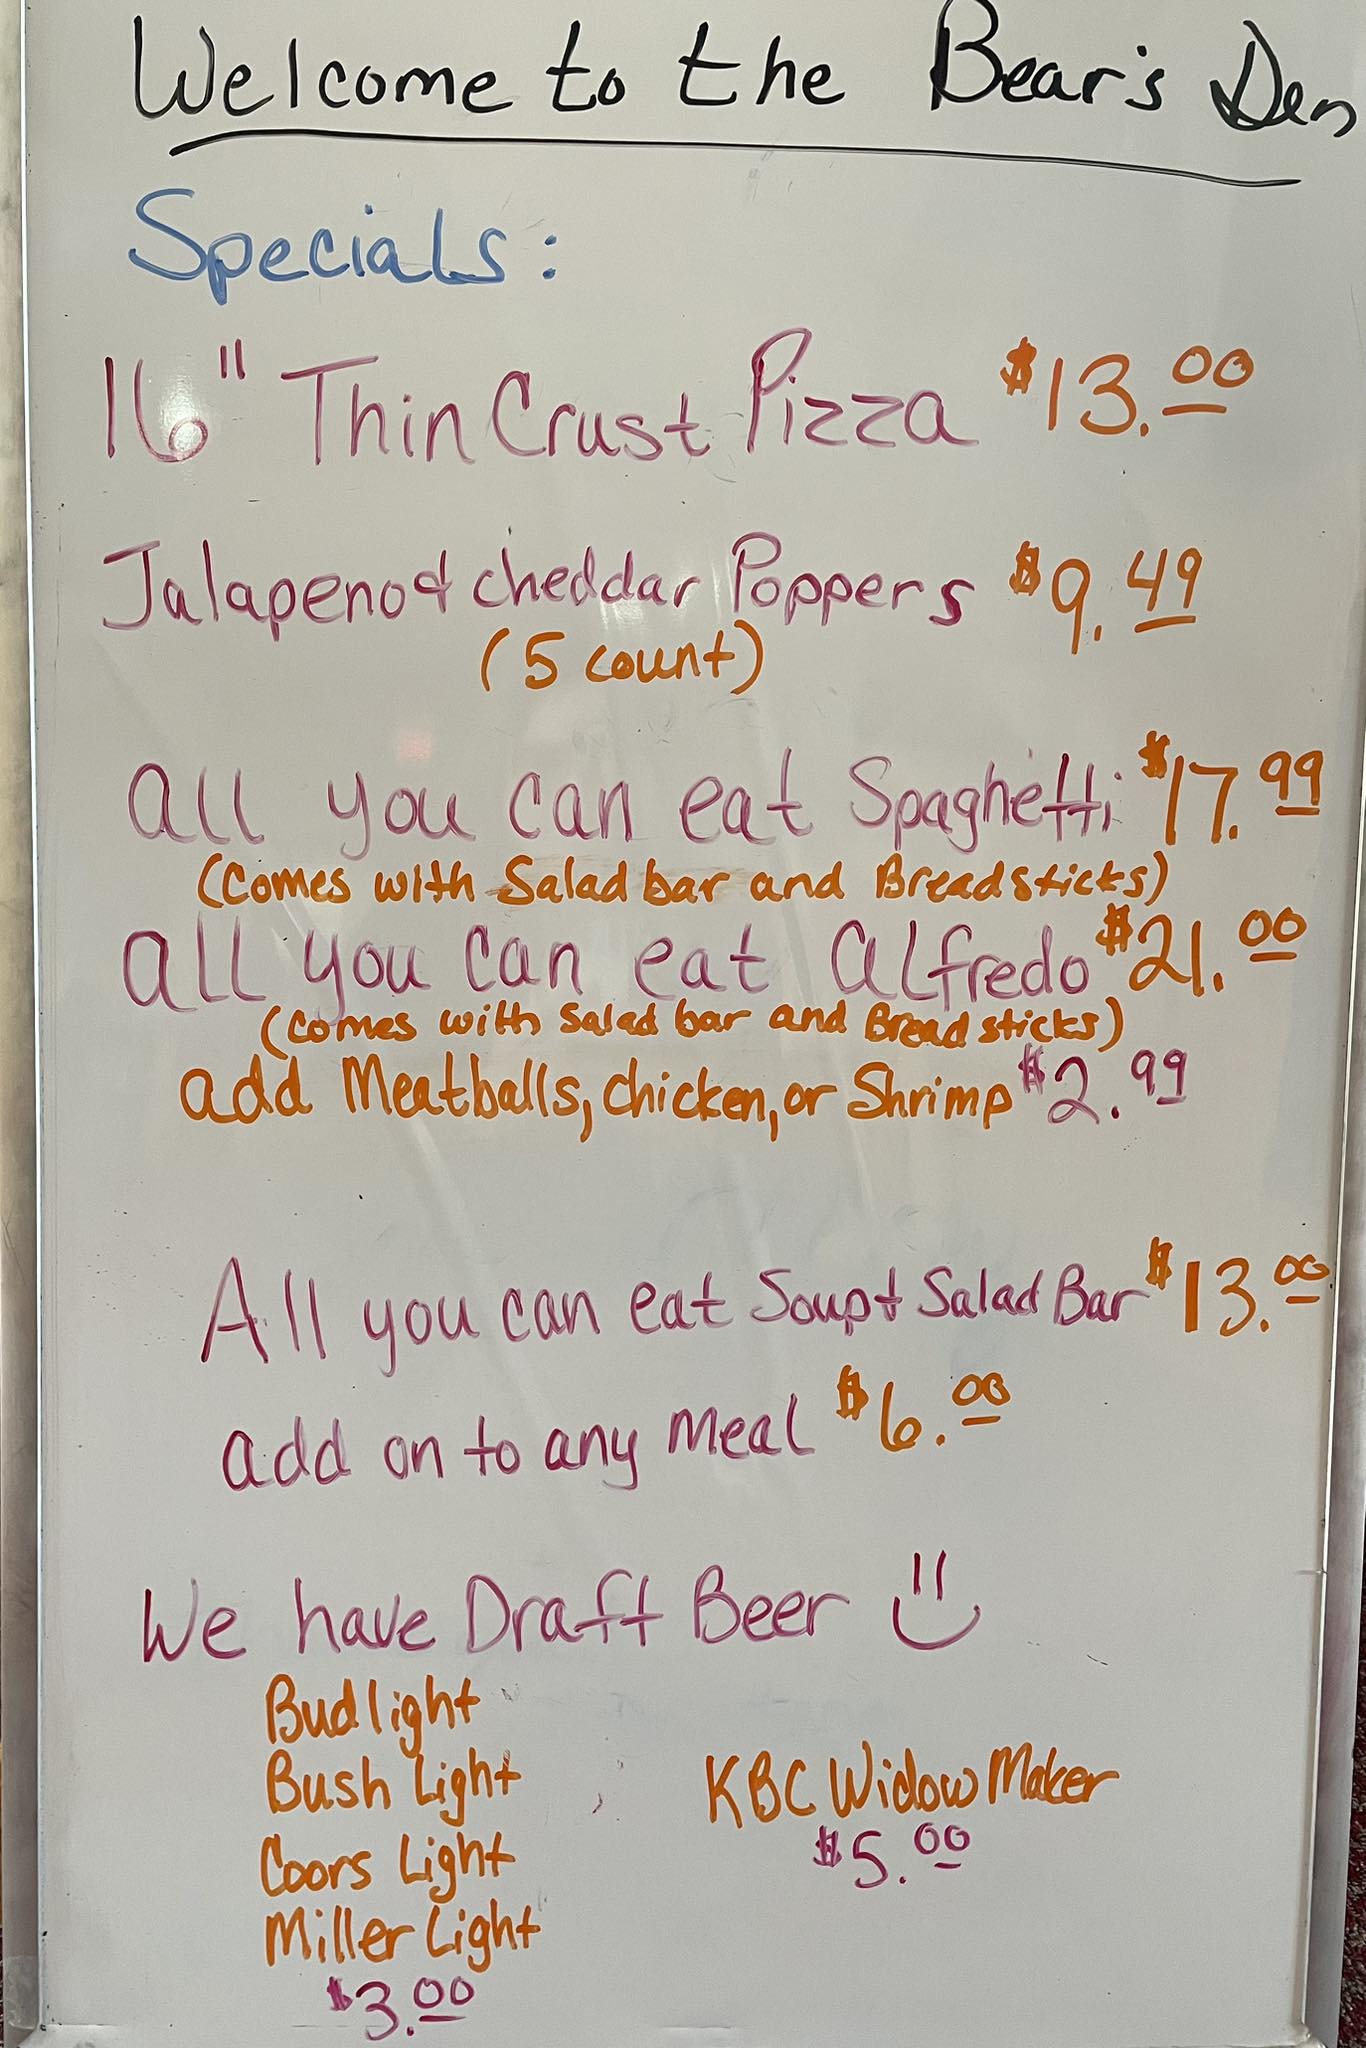 Welcome to the Bear's Den
Specials:
16" Thin Crust Pizza $13.00
Jalapeno & cheddar Poppers $9.49
(5 count)
all you can eat Spaghetti $17.99
(Comes with Salad bar and Breadsticks)
all you can eat alfredo $21.00
(Comes with Salad bar and Bread sticks)
add Meatballs, chicken, or Shrimp $2.99
All you can eat Soup + Salad Bar $13.00
add on to any meal $6.00
We have Draft Beer
Bud light
Bush Light
Coors Light
Miller Light
$3.00
KBC Widow Maker
$5.00